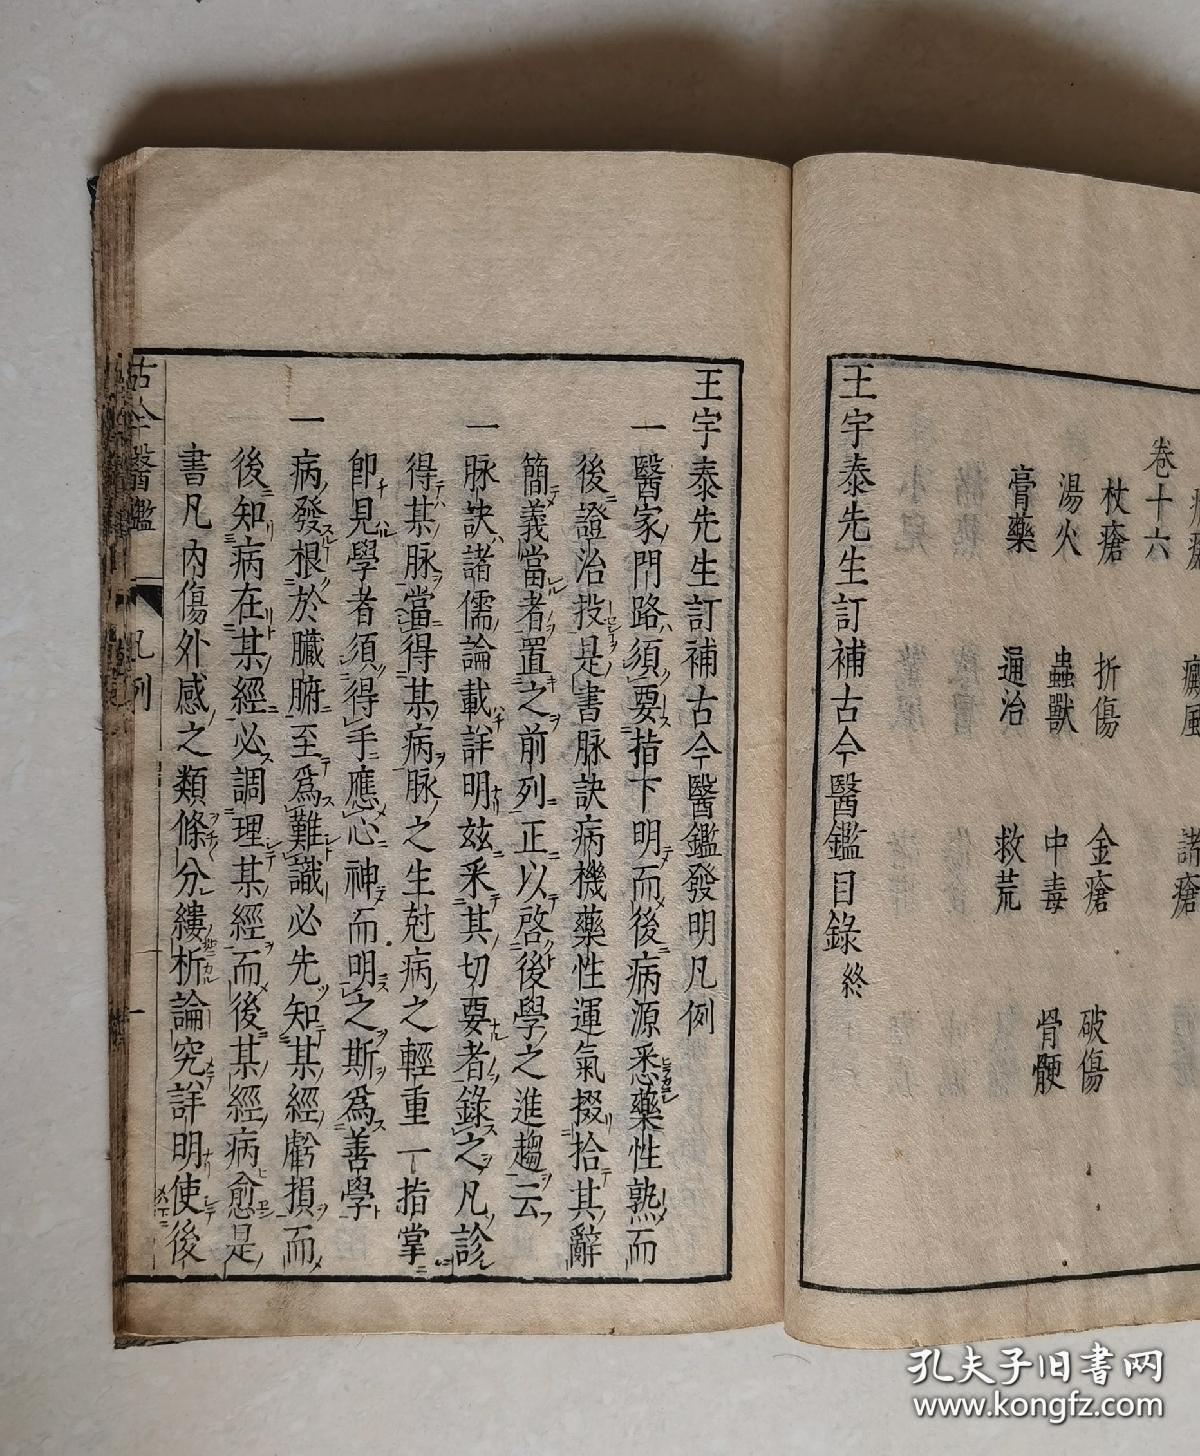 卷十六
杖瘡 折傷 金瘡 破傷
湯火 蟲獸 中毒 骨骾
膏藥 通治 救荒
王宇泰先生訂補古今醫鑑目錄終
王宇泰先生訂補古今醫鑑發明凡例
一醫家門路須要指下明而後病源悉藥性熟而
後證治投是書脉訣病機藥性運氣掇拾其辭
簡義當者置之前列正以啓後學之進趨云
一脉訣諸儒論載詳明玆釆其切要者錄之凡診
得某脉當得某病脉之生尅病之輕重一指掌
卽見學者須得手應心神而明之斯爲善學
一病發根於臟腑至爲難識必先知某經虧損而
後知病在某經必調理某經而後某經病愈是
書凡內傷外感之類條分縷析論究詳明使後
古今醫鑑 凡例 一
孔夫子旧書网
www.kongfz.com